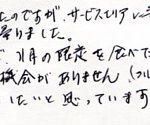 たのですが、サービスエリア
寄りました。
で、1月の限定を食べた
機会がありません
したいと思っています